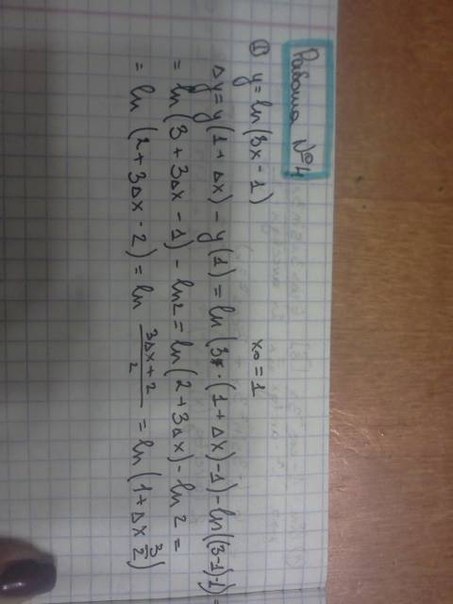 Работа №4
① y = ln(3x - 1) x₀ = 1
Δy = y(1 + Δx) - y(1) = ln(3·(1 + Δx) - 1) - ln((3-1)-1) =
= ln(3 + 3Δx - 1) - ln2 = ln(2 + 3Δx) - ln 2 =
= ln (2 + 3Δx - 2) = ln (3Δx + 2)/2 = ln(1 + Δx 3/2)